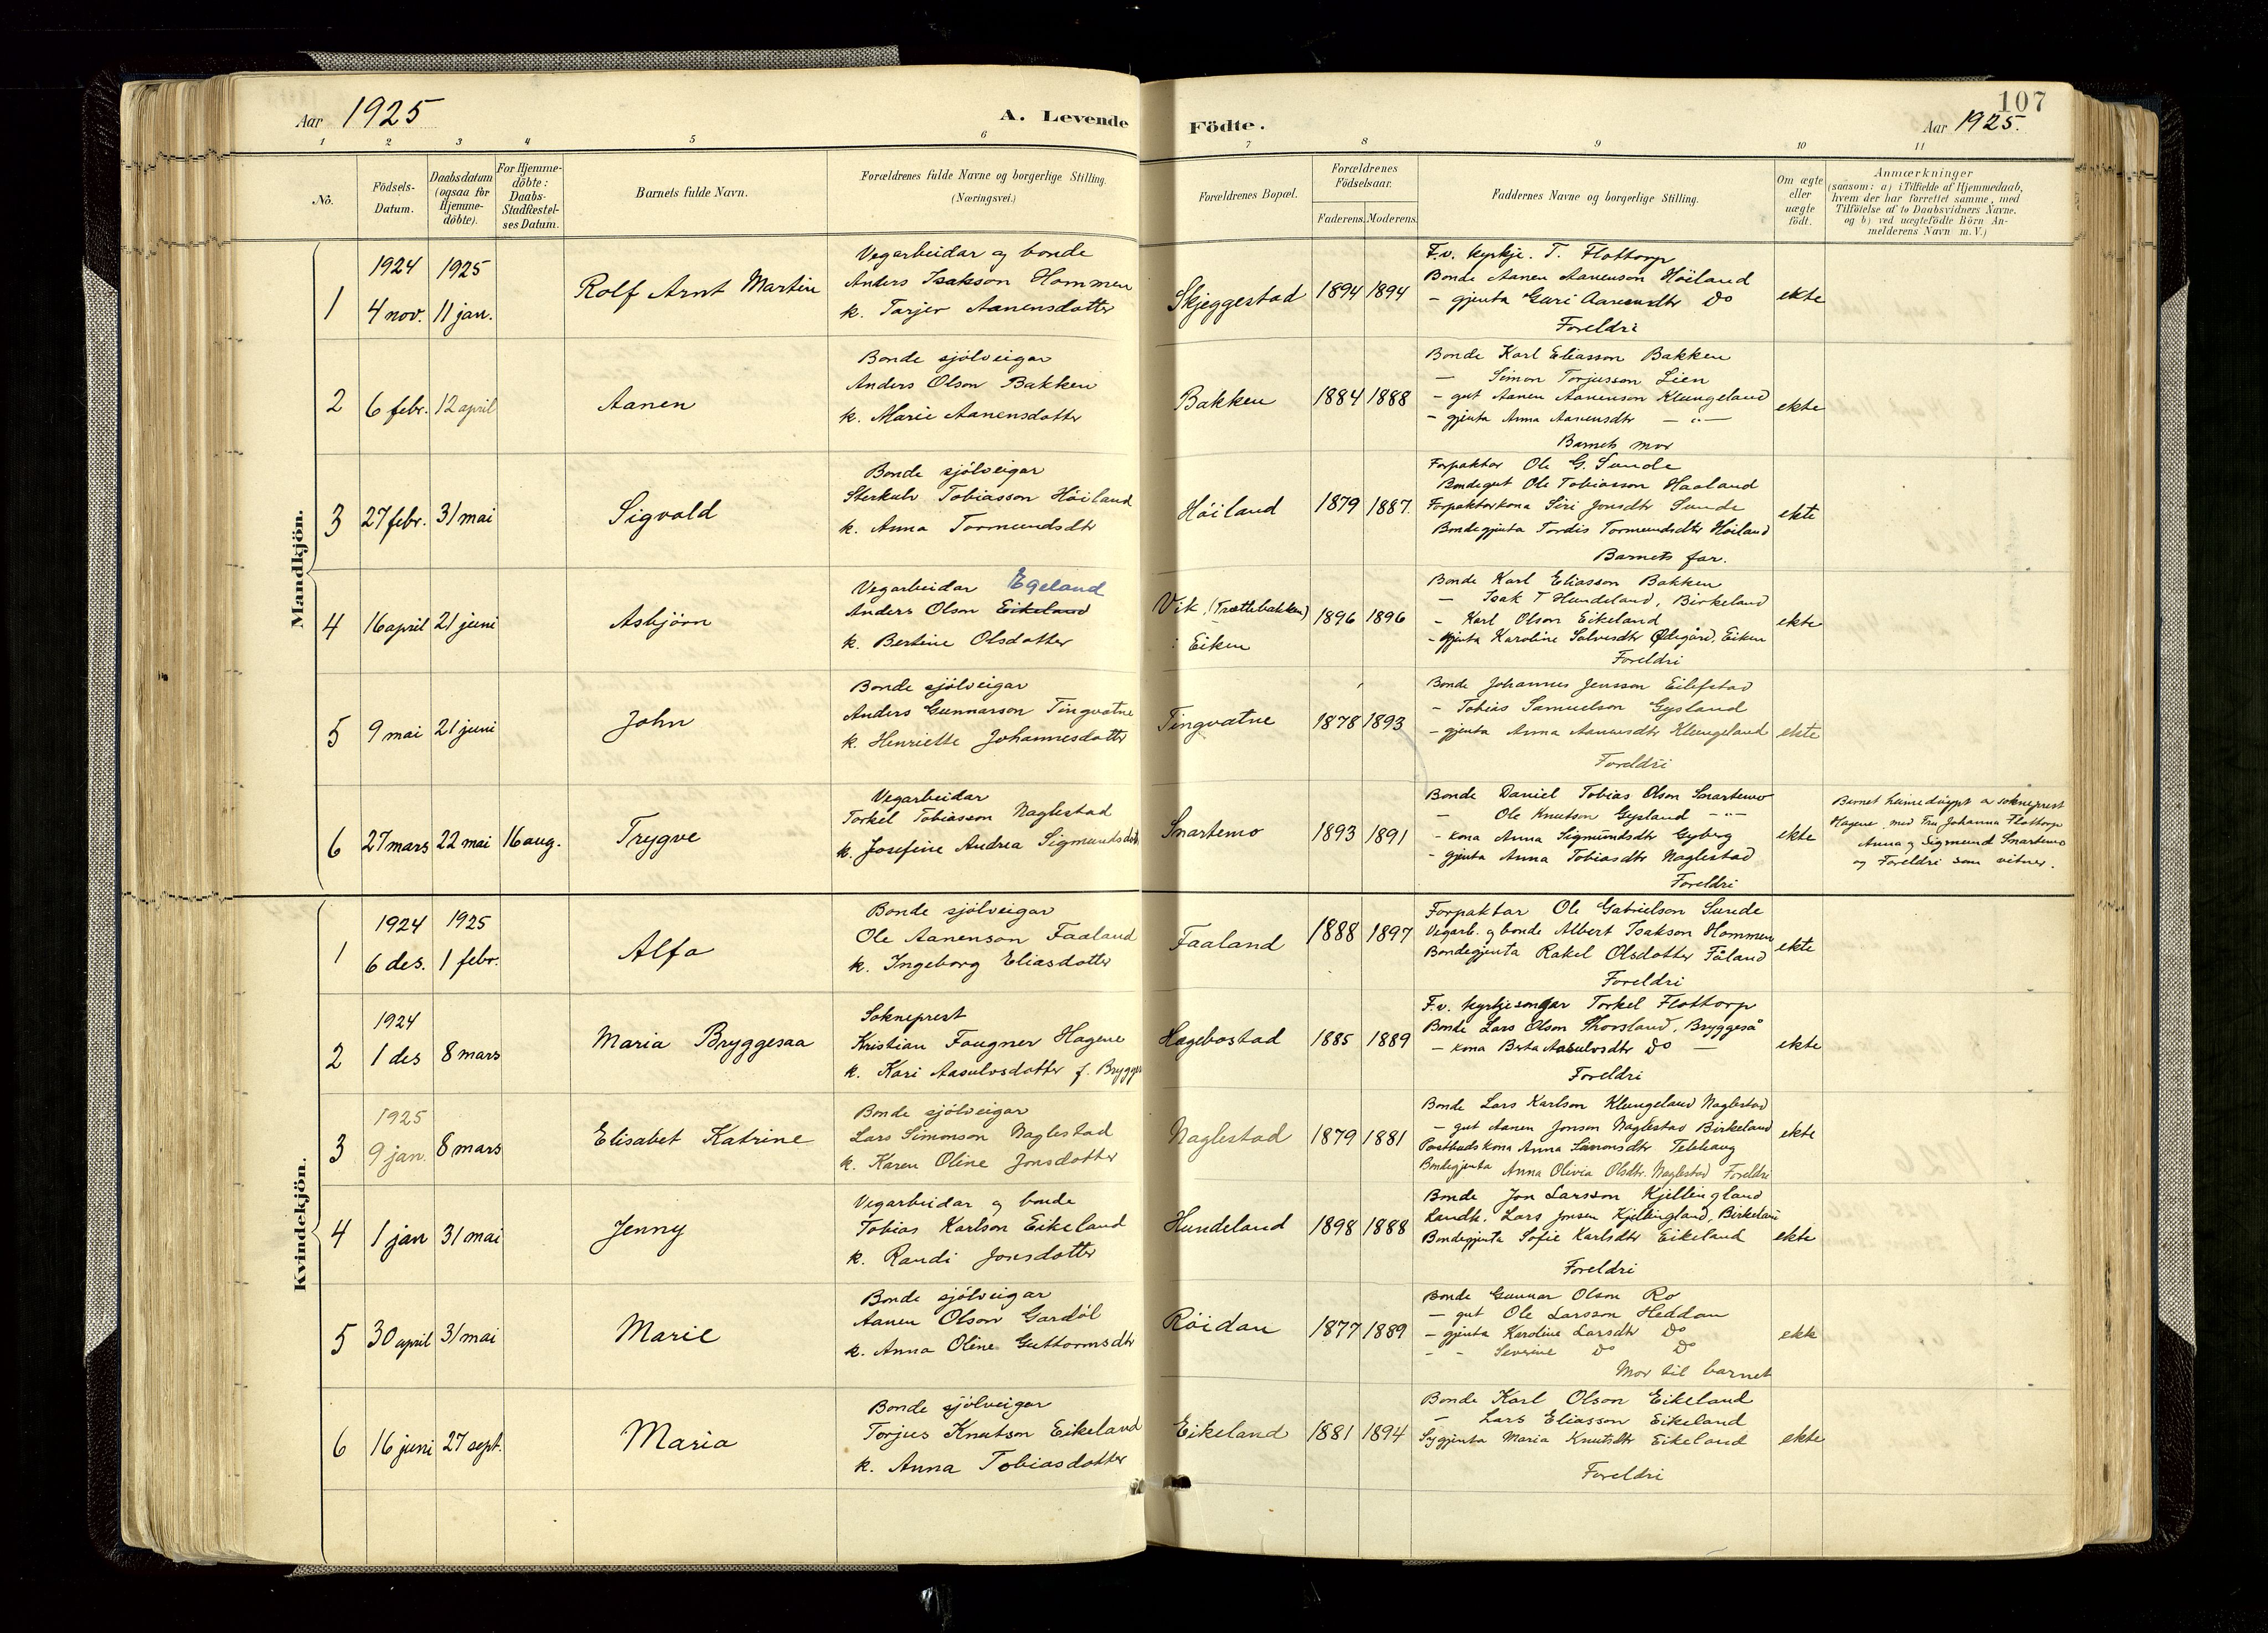 107
Aar 1925
A. Levende Födte.
Aar 1925.
1 2 3 4 5 6 7 8 9 10 11
No.
Födsels-
Datum.
Daabsdatum
(ogsaa for
Hjemme-
döbte).
For Hjemme-
döbte:
Daabs-
Stadfæstel-
ses Datum.
Barnets fulde Navn.
Forældrenes fulde Navne og borgerlige Stilling.
(Næringsvei.)
Forældrenes Bopæl.
Forældrenes
Födselsaar.
Faderens. Moderens.
Faddernes Navne og borgerlige Stilling.
Om ægte
eller
uægte
födt.
Anmærkninger
(saasom: a) i Tilfælde af Hjemmedaab,
hvem der har forrettet samme, med
Tilföielse af to Daabsvidners Navne.
og b) ved uægtefödte Börn An-
melderens Navn m. V.)
Mandkjön.
1
1924
4 nov.
1925
11 jan.
Rolf Arnt Martin
Vegarbeidar og bonde
Anders Isakson Hommen
k. Tarjer Aanensdotter
Skjeggestad
1894 1894
F.v. kyrkje. T. Flottorp
Bonde Aanen Aanenson Höiland
- gjenta Guri Aanensdtr Do
Foreldri
ekte
2
6 febr.
12 april
Aanen
Bonde sjölveigar
Anders Olson Bakken
k. Marie Aanensdotter
Bakken
1884 1888
Bonde Karl Eliasson Bakken
— Simon Torjusson Lien
- gut Aanen Aanenson Klungeland
- gjenta Anna Aanensdtr — " —
Barnets mor
ekte
3
27 febr.
31 mai
Sigvald
Bonde sjölveigar
Sterkulv Tobiasson Höiland
k. Anna Tormundsdtr
Höiland
1879 1887.
Forpaktar Ole G. Sunde
Bondegut Ole Tobiasson Haaland
Forpaktarkona Siri Jonsdtr Sunde
Bondegjenta Tordis Tormundsdtr Höiland
Barnets far.
ekte
4
16 april
21 juni
Asbjörn
Vegarbeidar Egeland
Anders Olson Eikeland
k. Bertine Olsdotter
Vik (Trættebakken)
i Eiken
1896 1896
Bonde Karl Eliasson Bakken
— Isak T Hundeland, Birkeland
- Karl Olson Eikeland
- gjenta Karoline Salvesdtr Ødegård, Eiken
Foreldri
ekte
5
9 mai
21 juni
John
Bonde sjölveigar
Anders Gunnarson Tingvatne
k. Henriette Johannesdotter
Tingvatne
1878 1893
Bonde Johannes Jensson Eilefstad
- Tobias Samuelson Gysland
- gjenta Anna Aanensdtr Klungeland
Foreldri
ekte
6
27 mars
22 mai
16 aug.
Trygve
Vegarbeidar
Torkel Tobiasson Naglestad
k. Josefine Andrea Sigmundsdotr
Snartemo
1893 1891
Bonde Daniel Tobias Olson Snartemo
— Ole Knutson Gysland - " -
- kona Anna Sigmundsdtr Gyberg
- gjenta Anna Tobiasdtr Naglestad
Foreldri
ekte
Barnet heimedöypt av sokneprest
Hagene med Fru Johanna Flottorp
Anna og Sigmund Snartemo
og Foreldri som vitner.
Kvindekjön.
1
1924
6 des.
1925
1 febr.
Alfa
Bonde sjölveigar
Ole Aanenson Faaland
k. Ingeborg Eliasdotter
Faaland
1888 1897
Forpaktar Ole Gabrielson Sunde
Vegarb. og bonde Albert Isakson Hommen
Bondegjenta Rakel Olsdotter Fåland
Foreldri
ekte
2
1924
1 des
8 mars
Maria Bryggesaa
Sokneprest
Kristian Fougner Hagene
k. Kari Aasulvsdotter f. Brygges
Hægebostad
1885 1889
F.v. kyrkjesongar Torkel Flottorp
Bonde Lars Olson Thorsland, Bryggeså
- kona Berta Aasulvsdtr Do —
Foreldri
ekte
3
1925
9 jan.
8 mars
Elisabet Katrine
Bonde sjölveigar
Lars Simonson Naglestad
k. Karen Oline Jonsdotter
Naglestad
1879 1881
Bonde Lars Karlson Klungeland Naglestad
- gut Aanen Jonson Naglestad Birkeland
Postbudskona Anna Simonsdtr Telehaug
Bondegjenta Anna Olivia Olsdtr. Naglestad Foreldri
ekte
4
1 jan
31 mai
Jenny
Vegarbeidar og bonde
Tobias Karlson Eikeland
k. Randi Jonsdotter
Hundeland
1898 1888
Bonde Jon Larsson Kjellingland
Landh. Lars Jonsen Kjellingland, Birkeland
Bondegjenta Sofie Karlsdtr Eikeland
Foreldri
ekte
5
30 april
31 mai
Marie
Bonde sjölveigar
Aanen Olson Gardöl
k. Anna Oline Guttormsdtr
Röidan
1877 1889
Bonde Gunnar Olson Ro
— gut Ole Larsson Heddan
- gjenta Karoline Larsdtr Do
- - Severine Do Do
Mor til barnet
ekte
6
16 juni
27 sept.
Maria
Bonde sjölveigar
Torjus Knutson Eikeland
k. Anna Tobiasdotter
Eikeland
1881 1894
Bonde Karl Olson Eikeland
- Lars Eliasson Eikeland
Sygjenta Maria Knutsdtr Eikeland
Foreldri
ekte